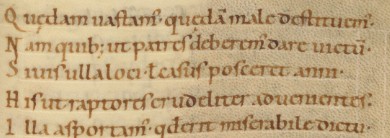 Quędam uastam̄· quędā male destituem̄·
Nam quib; ut patres deberem̄ dare uictū·
Si uis ulla loci· ł casus posceret anni·
His ut raptores crudeliter aduenientes·
Illa asportam̄· qđ erit miserabile dictu·